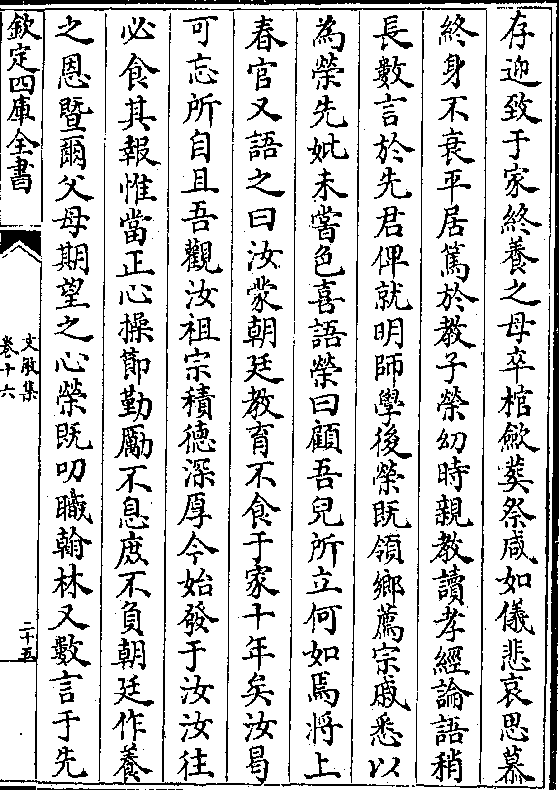 存迎致于家終養之母卒棺斂葬祭咸如儀悲哀思慕
終身不衰平居篤於教子榮幼時親教讀孝經論語稍
長數言於先君俾就明師學後榮既領鄉薦宗戚悉以
為榮先妣未嘗色喜語榮曰顧吾兒所立何如焉將上
春官又語之曰汝蒙朝廷教育不食于家十年矣汝曷
可忘所自且吾觀汝祖宗積德深厚今始發于汝汝往
必食其報惟當正心操節勤勵不息庶不負朝廷作養
之恩暨爾父母期望之心榮既叨職翰林又數言于先
欽定四庫全書
文敏集
卷十六
二十五